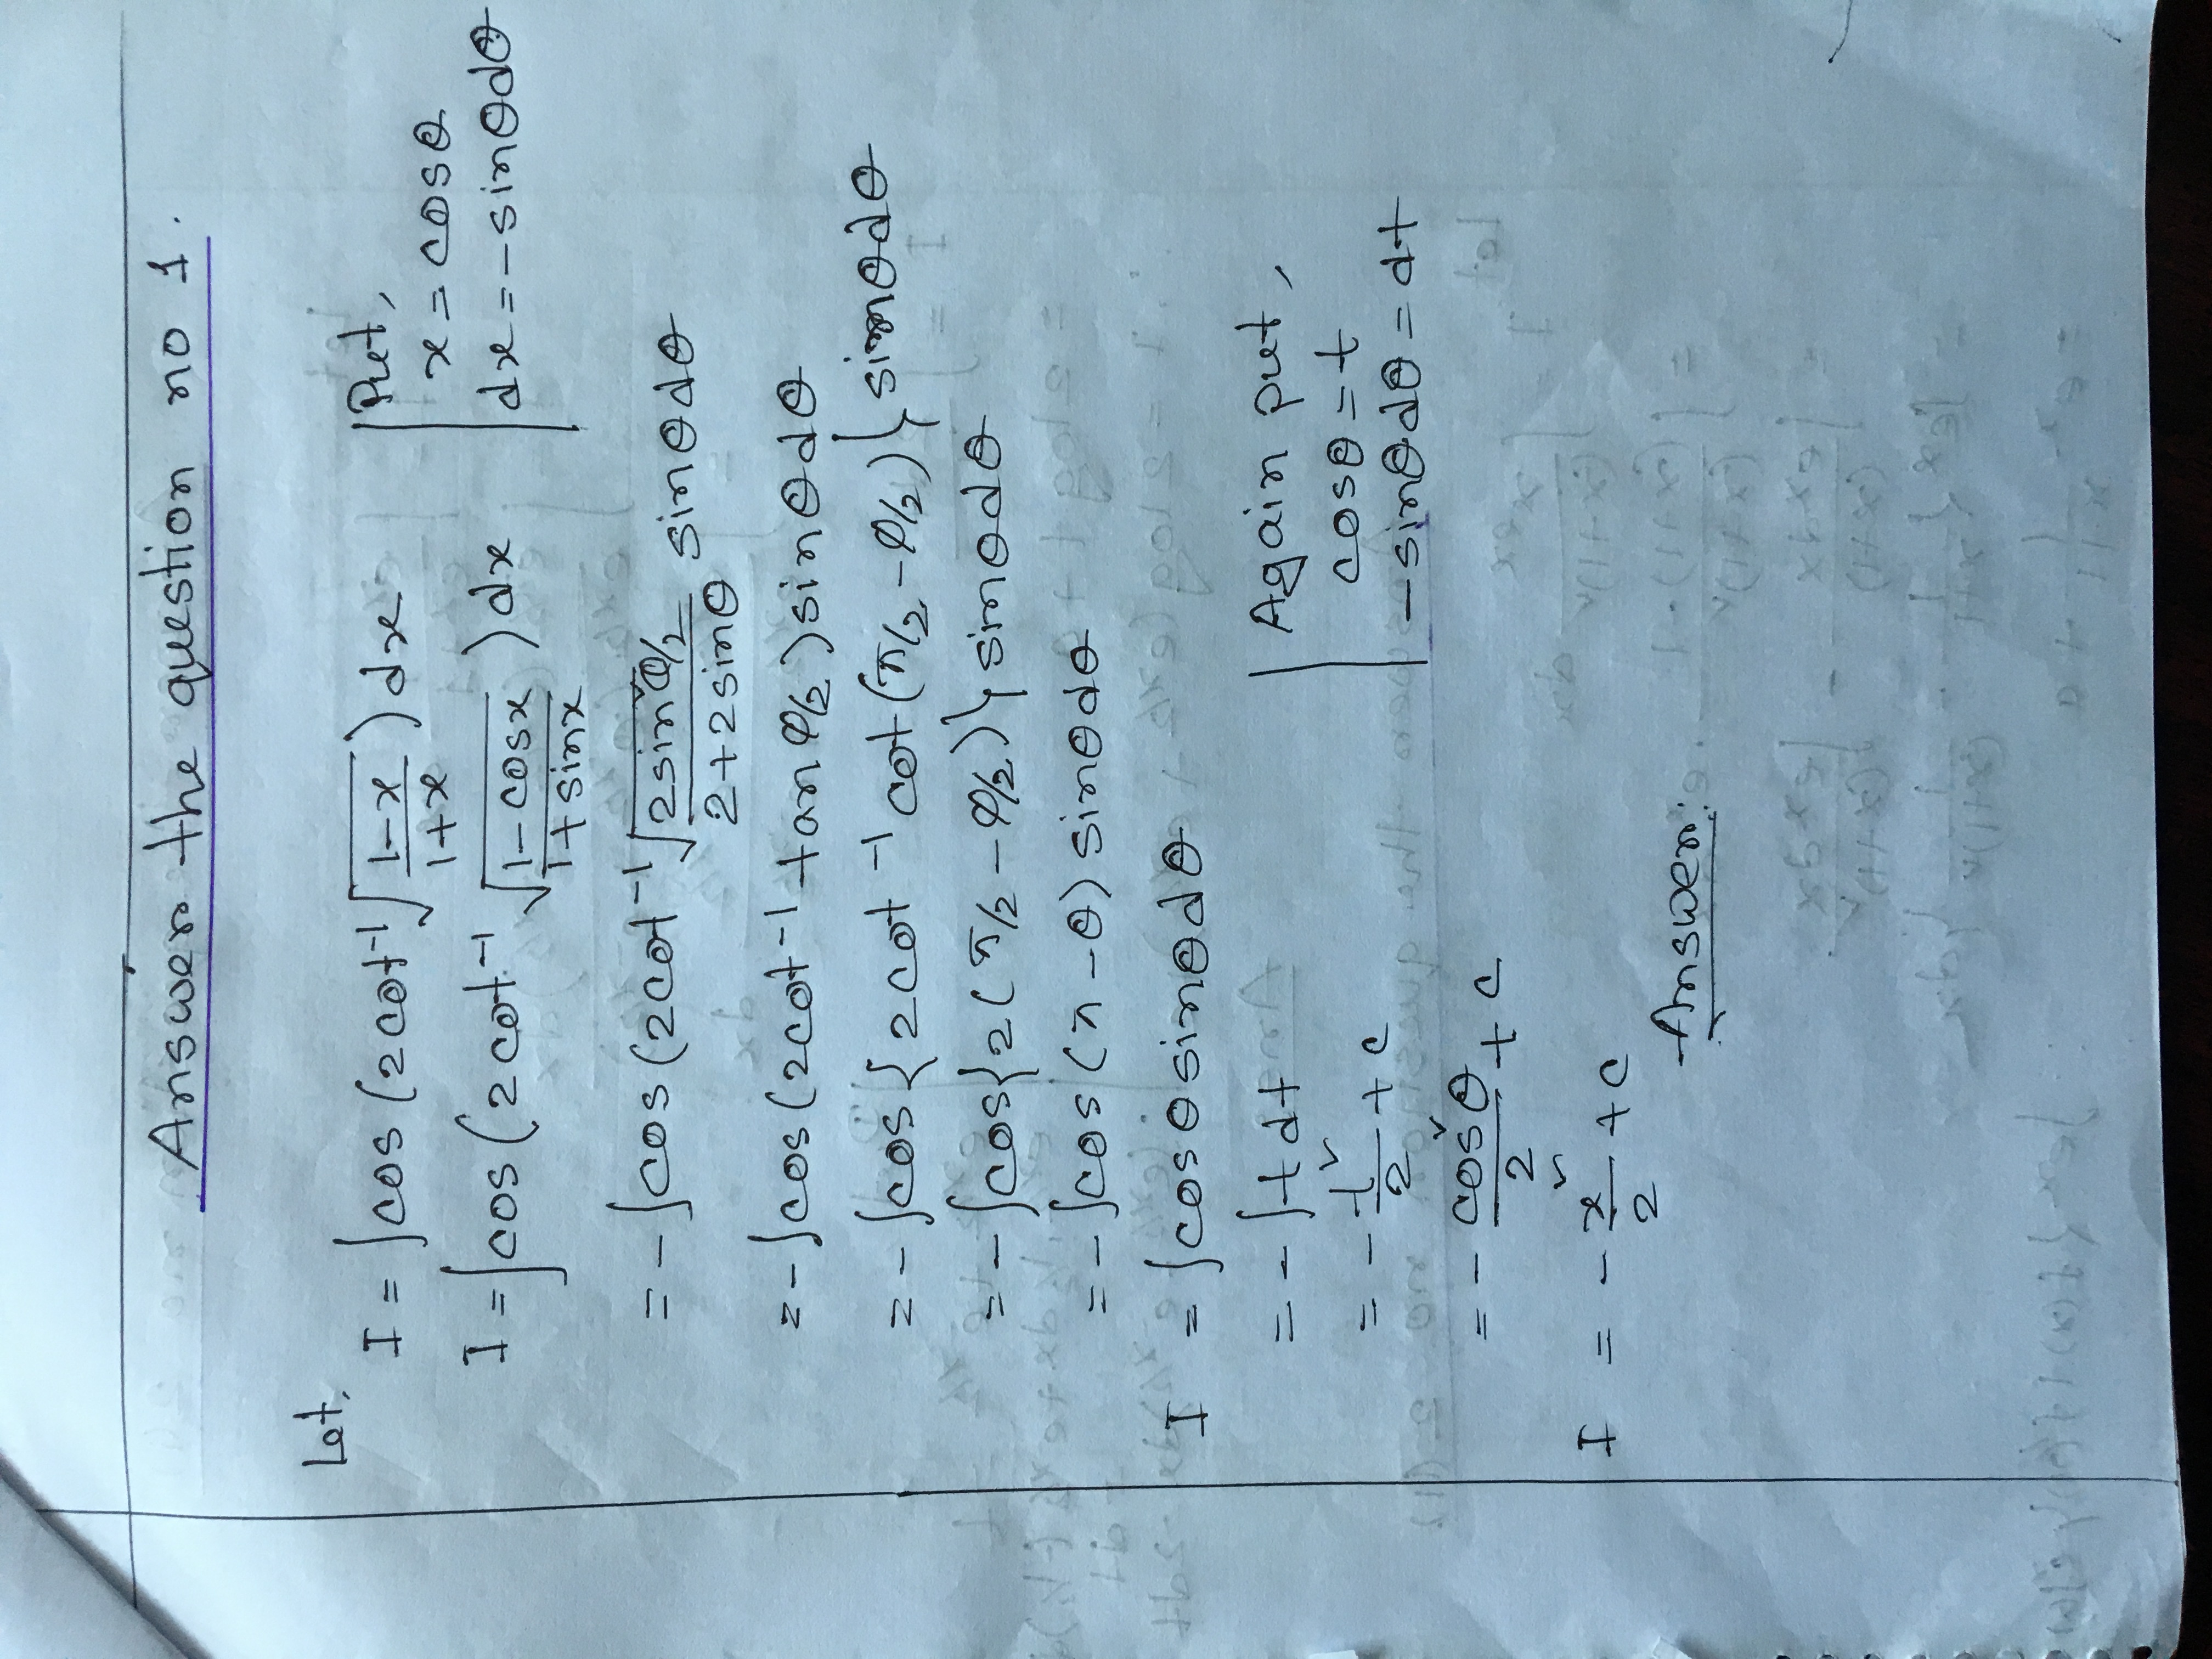 Answer the question no 1.
Let,
I = ∫cos (2cot⁻¹ √(1-x / 1+x)) dx
Put,
x = cosθ
dx = -sinθdθ
I = ∫cos (2cot⁻¹ √(1-cosx / 1+sinx)) dx
= -∫cos (2cot⁻¹ √(2sin²θ/2 / 2+2sinθ) sinθdθ
= -∫cos (2cot⁻¹ tan θ/2) sinθdθ
= -∫cos {2cot⁻¹ cot (π/2 - θ/2)} sinθdθ
= -∫cos{2(π/2 - θ/2)} sinθdθ
= -∫cos (π - θ) sinθdθ
I = ∫cosθsinθdθ
= -∫t dt
= - t²/2 + c
Again put,
cosθ = t
-sinθdθ = dt
= - cos²θ/2 + c
I = - x²/2 + c
Answer: